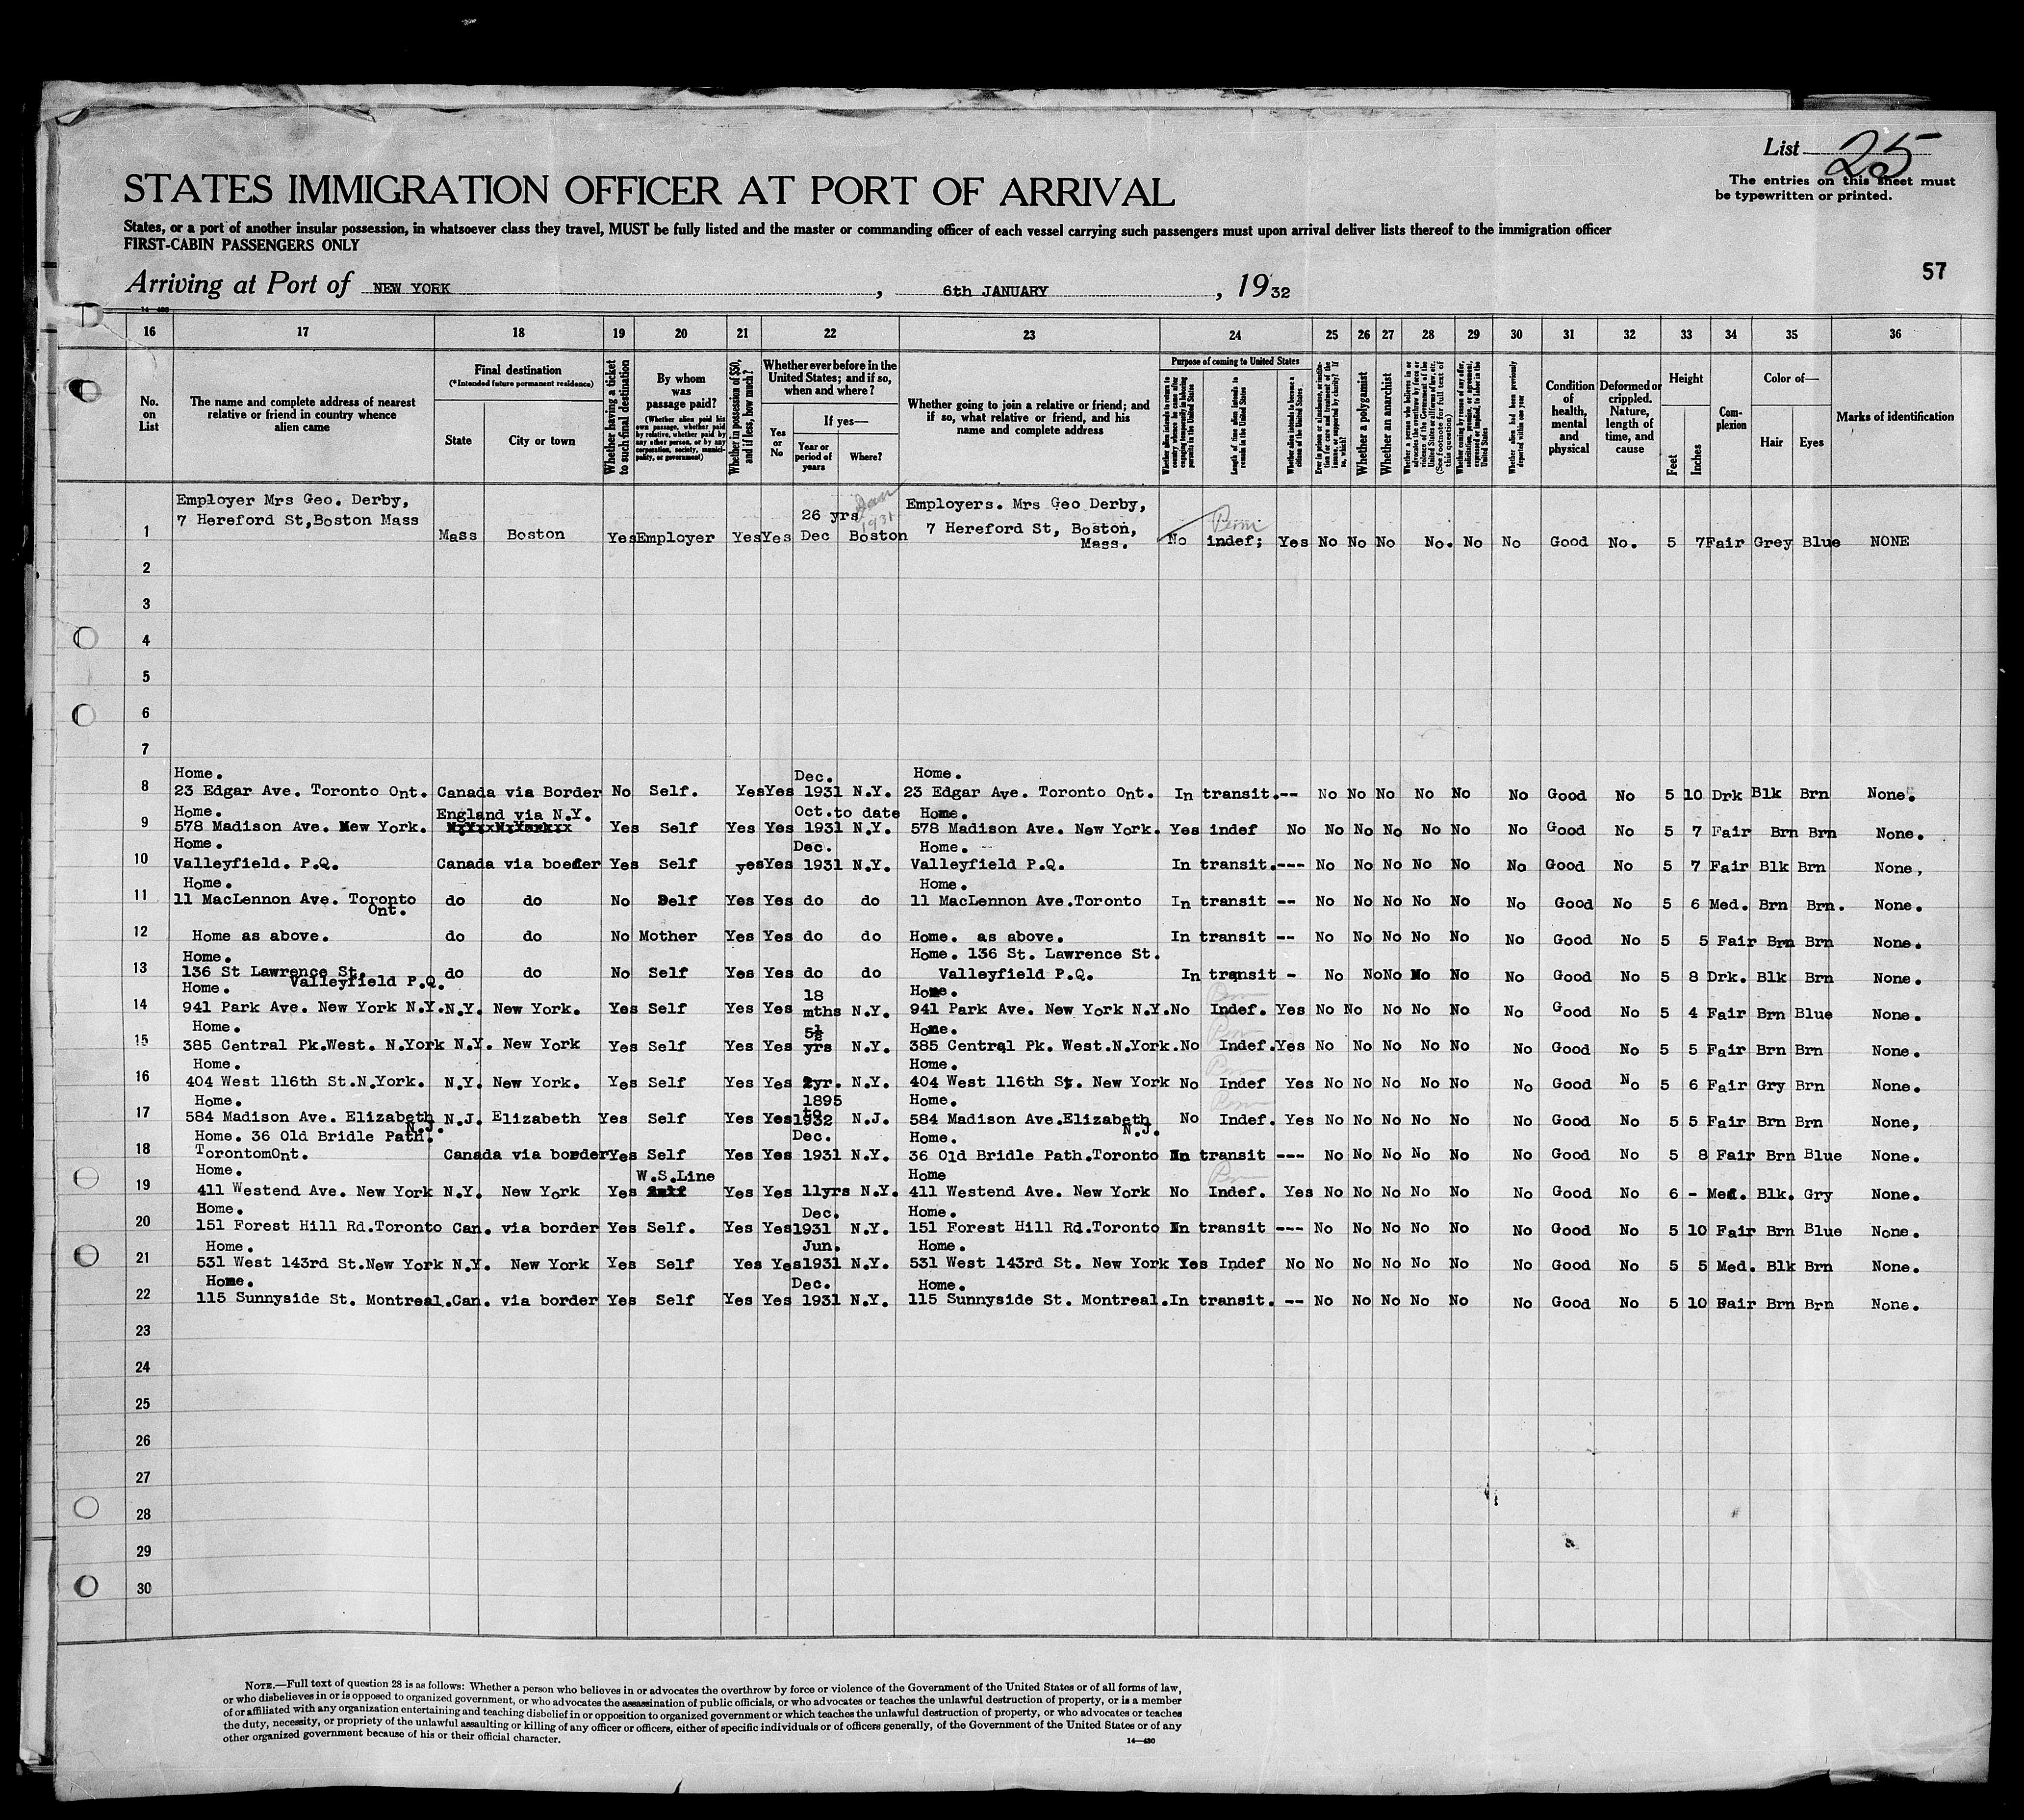 List 25
The entries on this sheet must
be typewritten or printed.
STATES IMMIGRATION OFFICER AT PORT OF ARRIVAL
States, or a port of another insular possession, in whatsoever class they travel, MUST be fully listed and the master or commanding officer of each vessel carrying such passengers must upon arrival deliver lists thereof to the immigration officer
FIRST-CABIN PASSENGERS ONLY
57
Arriving at Port of NEW YORK, 6th JANUARY, 1932
14—430
16 17 18 19 20 21 22 23 24 25 26 27 28 29 30 31 32 33 34 35 36
No. on List
The name and complete address of nearest relative or friend in country whence alien came
Final destination
(*Intended future permanent residence)
State
City or town
Whether having a ticket to such final destination
By whom was passage paid?
(Whether alien paid his own passage, whether paid by relative, whether paid by any other person, or by any corporation, society, municipality, or government)
Whether in possession of $50, and if less, how much?
Whether ever before in the United States; and if so, when and where?
Yes or No
If yes—
Year or period of years
Where?
Whether going to join a relative or friend; and if so, what relative or friend, and his name and complete address
Purpose of coming to United States
Whether alien intends to return to country whence he came after engaging temporarily in laboring pursuits in the United States
Length of time alien intends to remain in the United States
Whether alien intends to become a citizen of the United States
Ever in prison or almshouse, or institution for care and treatment of the insane, or supported by charity? If so, which?
Whether a polygamist
Whether an anarchist
Whether a person who believes in or advocates the overthrow by force or violence of the Government of the United States or all forms of law, etc. (See footnote for full text of this question)
Whether coming by reason of any offer, solicitation, promise, or agreement, expressed or implied, to labor in the United States
Whether alien had been previously deported within one year
Condition of health, mental and physical
Deformed or crippled. Nature, length of time, and cause
Height
Feet
Inches
Complexion
Color of—
Hair
Eyes
Marks of identification
1 Employer Mrs Geo. Derby, 7 Hereford St,Boston Mass Mass Boston Yes Employer Yes Yes 26 yrs Dec 1931 Boston Employers. Mrs Geo Derby, 7 Hereford St, Boston, Mass. No Perm indef; Yes No No No No. No No Good No. 5 7 Fair Grey Blue NONE
2
3
4
5
6
7
8 Home. 23 Edgar Ave. Toronto Ont. Canada via Border No Self. Yes Yes Dec. 1931 N.Y. Home. 23 Edgar Ave. Toronto Ont. In transit.-- No No No No No No Good No 5 10 Drk Blk Brn None.
9 Home. 578 Madison Ave. New York. England via N.Y. Yes Self Yes Yes Oct.to date 1931 N.Y. Home. 578 Madison Ave. New York. Yes indef No No No No No No No Good No 5 7 Fair Brn Brn None.
10 Home. Valleyfield. P.Q. Canada via boeder Yes Self yes Yes Dec. 1931 N.Y. Home. Valleyfield P.Q. In transit.--- No No No No No No Good No 5 7 Fair Blk Brn None,
11 Home. 11 MacLennon Ave. Toronto Ont. do do No Self Yes Yes do do Home. 11 MacLennon Ave.Toronto In transit -- No No No No No No Good No 5 6 Med. Brn Brn. None.
12 Home as above. do do No Mother Yes Yes do do Home. as above. In transit -- No No No No No No Good No 5 5 Fair Brn Brn None.
13 Home. 136 St Lawrence St. Valleyfield P.Q. do do No Self Yes Yes do do Home. 136 St. Lawrence St. Valleyfield P.Q. In transit - No No No No No No Good No 5 8 Drk. Blk Brn None.
14 Home. 941 Park Ave. New York N.Y. N.Y. New York. Yes Self Yes Yes 18 mths N.Y. Home. 941 Park Ave. New York N.Y. No Perm Indef. Yes No No No No No No Good No 5 4 Fair Brn Blue None.
15 Home. 385 Central Pk.West. N.York N.Y. New York Yes Self Yes Yes 5½ yrs N.Y. Home. 385 Central Pk. West.N.York. No Perm Indef. Yes No No No No No No Good No 5 5 Fair Brn Brn None.
16 Home. 404 West 116th St.N.York. N.Y. New York. Yes Self Yes Yes 2yr. N.Y. Home. 404 West 116th St. New York No Perm Indef Yes No No No No No No Good No 5 6 Fair Gry Brn None.
17 Home. 584 Madison Ave. Elizabeth N.J. N.J. Elizabeth Yes Self Yes Yes 1895 to 1932 N.J. Home. 584 Madison Ave.Elizabeth N.J. No Perm Indef. Yes No No No No No No Good No 5 5 Fair Brn Brn None,
18 Home. 36 Old Bridle Path. TorontomOnt. Canada via border Yes Self Yes Yes Dec. 1931 N.Y. Home. 36 Old Bridle Path.Toronto In transit --- No No No No No No Good No 5 8 Fair Brn Blue None.
19 Home. 411 Westend Ave. New York N.Y. New York Yes W.S.Line Yes Yes 11yrs N.Y. Home 411 Westend Ave. New York No Perm Indef. Yes No No No No No No Good No 6 - Med. Blk. Gry None.
20 Home. 151 Forest Hill Rd.Toronto Can. via border Yes Self. Yes Yes Dec. 1931 N.Y. Home. 151 Forest Hill Rd.Toronto In transit --- No No No No No No Good No 5 10 Fair Brn Blue None.
21 Home. 531 West 143rd St.New York N.Y. New York Yes Self Yes Yes Jun. 1931 N.Y. Home. 531 West 143rd St. New York Yes Indef No No No No No No No Good No 5 5 Med. Blk Brn None.
22 Home. 115 Sunnyside St. Montreal. Can. via border Yes Self Yes Yes Dec. 1931 N.Y. Home. 115 Sunnyside St. Montreal. In transit. -- No No No No No No Good No 5 10 Fair Brn Brn None.
23
24
25
26
27
28
29
30
NOTE.—Full text of question 28 is as follows: Whether a person who believes in or advocates the overthrow by force or violence of the Government of the United States or of all forms of law,
or who disbelieves in or is opposed to organized government, or who advocates the assassination of public officials, or who advocates or teaches the unlawful destruction of property, or is a member
of or affiliated with any organization entertaining and teaching disbelief in or opposition to organized government or which teaches the unlawful destruction of property, or who advocates or teaches
the duty, necessity, or propriety of the unlawful assaulting or killing of any officer or officers, either of specific individuals or of officers generally, of the Government of the United States or of any
other organized government because of his or their official character.
14—430